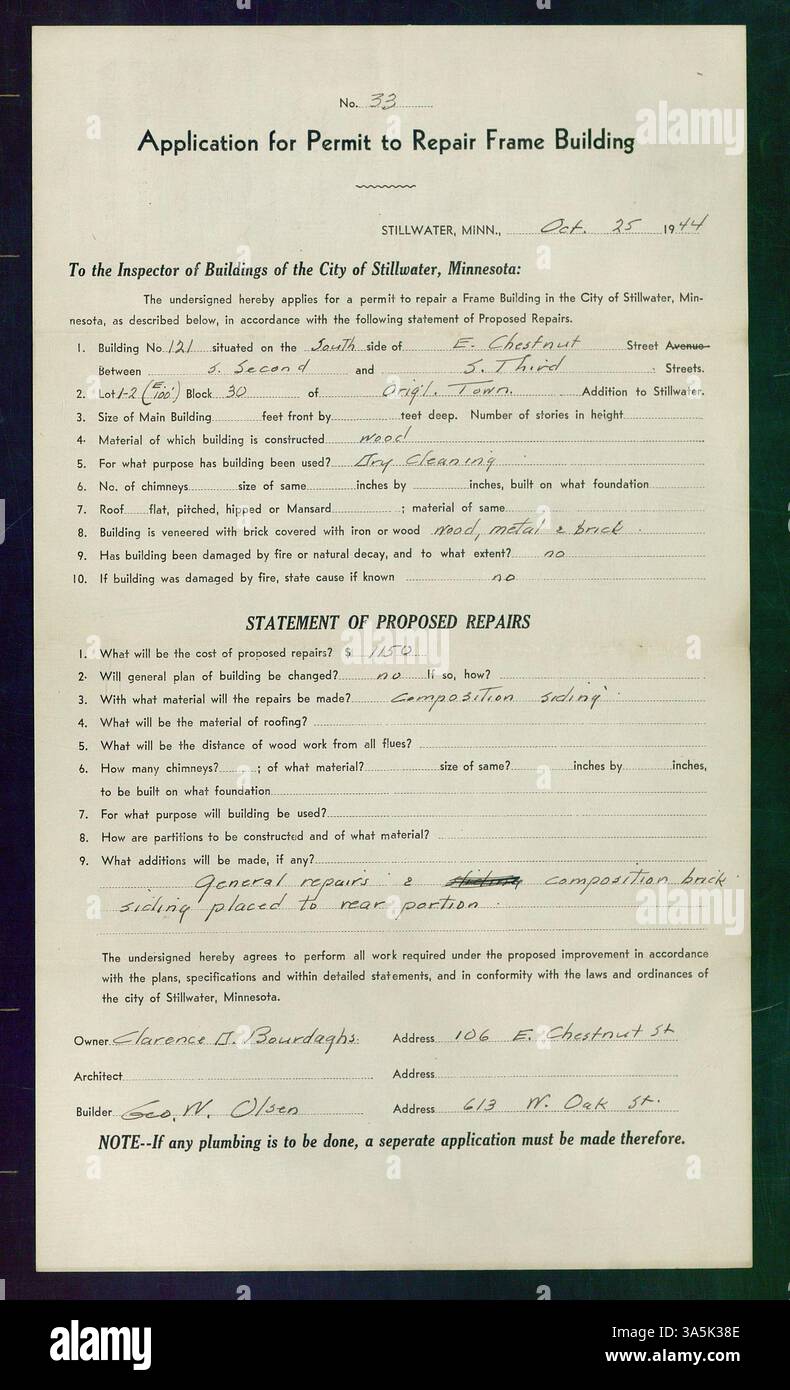 No. 33
Application for Permit to Repair Frame Building
STILLWATER, MINN., Oct. 25 1944
To the Inspector of Buildings of the City of Stillwater, Minnesota:
The undersigned hereby applies for a permit to repair a Frame Building in the City of Stillwater, Min-
nesota, as described below, in accordance with the following statement of Proposed Repairs.
1. Building No. 121 situated on the South side of E. Chestnut Street Avenue
Between S. Second and S. Third Streets.
2. Lot 1-2 (E. 100') Block 30 of Orig'l. Town. Addition to Stillwater.
3. Size of Main Building feet front by teet deep. Number of stories in height
4. Material of which building is constructed wood
5. For what purpose has building been used? Dry Cleaning
6. No. of chimneys size of same inches by inches, built on what foundation
7. Roof flat, pitched, hipped or Mansard ; material of same
8. Building is veneered with brick covered with iron or wood wood, metal & brick
9. Has building been damaged by fire or natural decay, and to what extent? no
10. If building was damaged by fire, state cause if known no
STATEMENT OF PROPOSED REPAIRS
1. What will be the cost of proposed repairs? $ 1150
2. Will general plan of building be changed? no If so, how?
3. With what material will the repairs be made? composition siding
4. What will be the material of roofing?
5. What will be the distance of wood work from all flues?
6. How many chimneys? ; of what material? size of same? inches by inches,
to be built on what foundation
7. For what purpose will building be used?
8. How are partitions to be constructed and of what material?
9. What additions will be made, if any?
General repairs & composition brick
siding placed to rear portion
The undersigned hereby agrees to perform all work required under the proposed improvement in accordance
with the plans, specifications and within detailed statements, and in conformity with the laws and ordinances of
the city of Stillwater, Minnesota.
Owner Clarence D. Bourdaghs. Address 106 E. Chestnut St
Architect Address
Builder Geo. W. Olsen Address 613 W. Oak St.
NOTE--If any plumbing is to be done, a seperate application must be made therefore.
alamy
Image ID: 3A5K38E
www.alamy.com